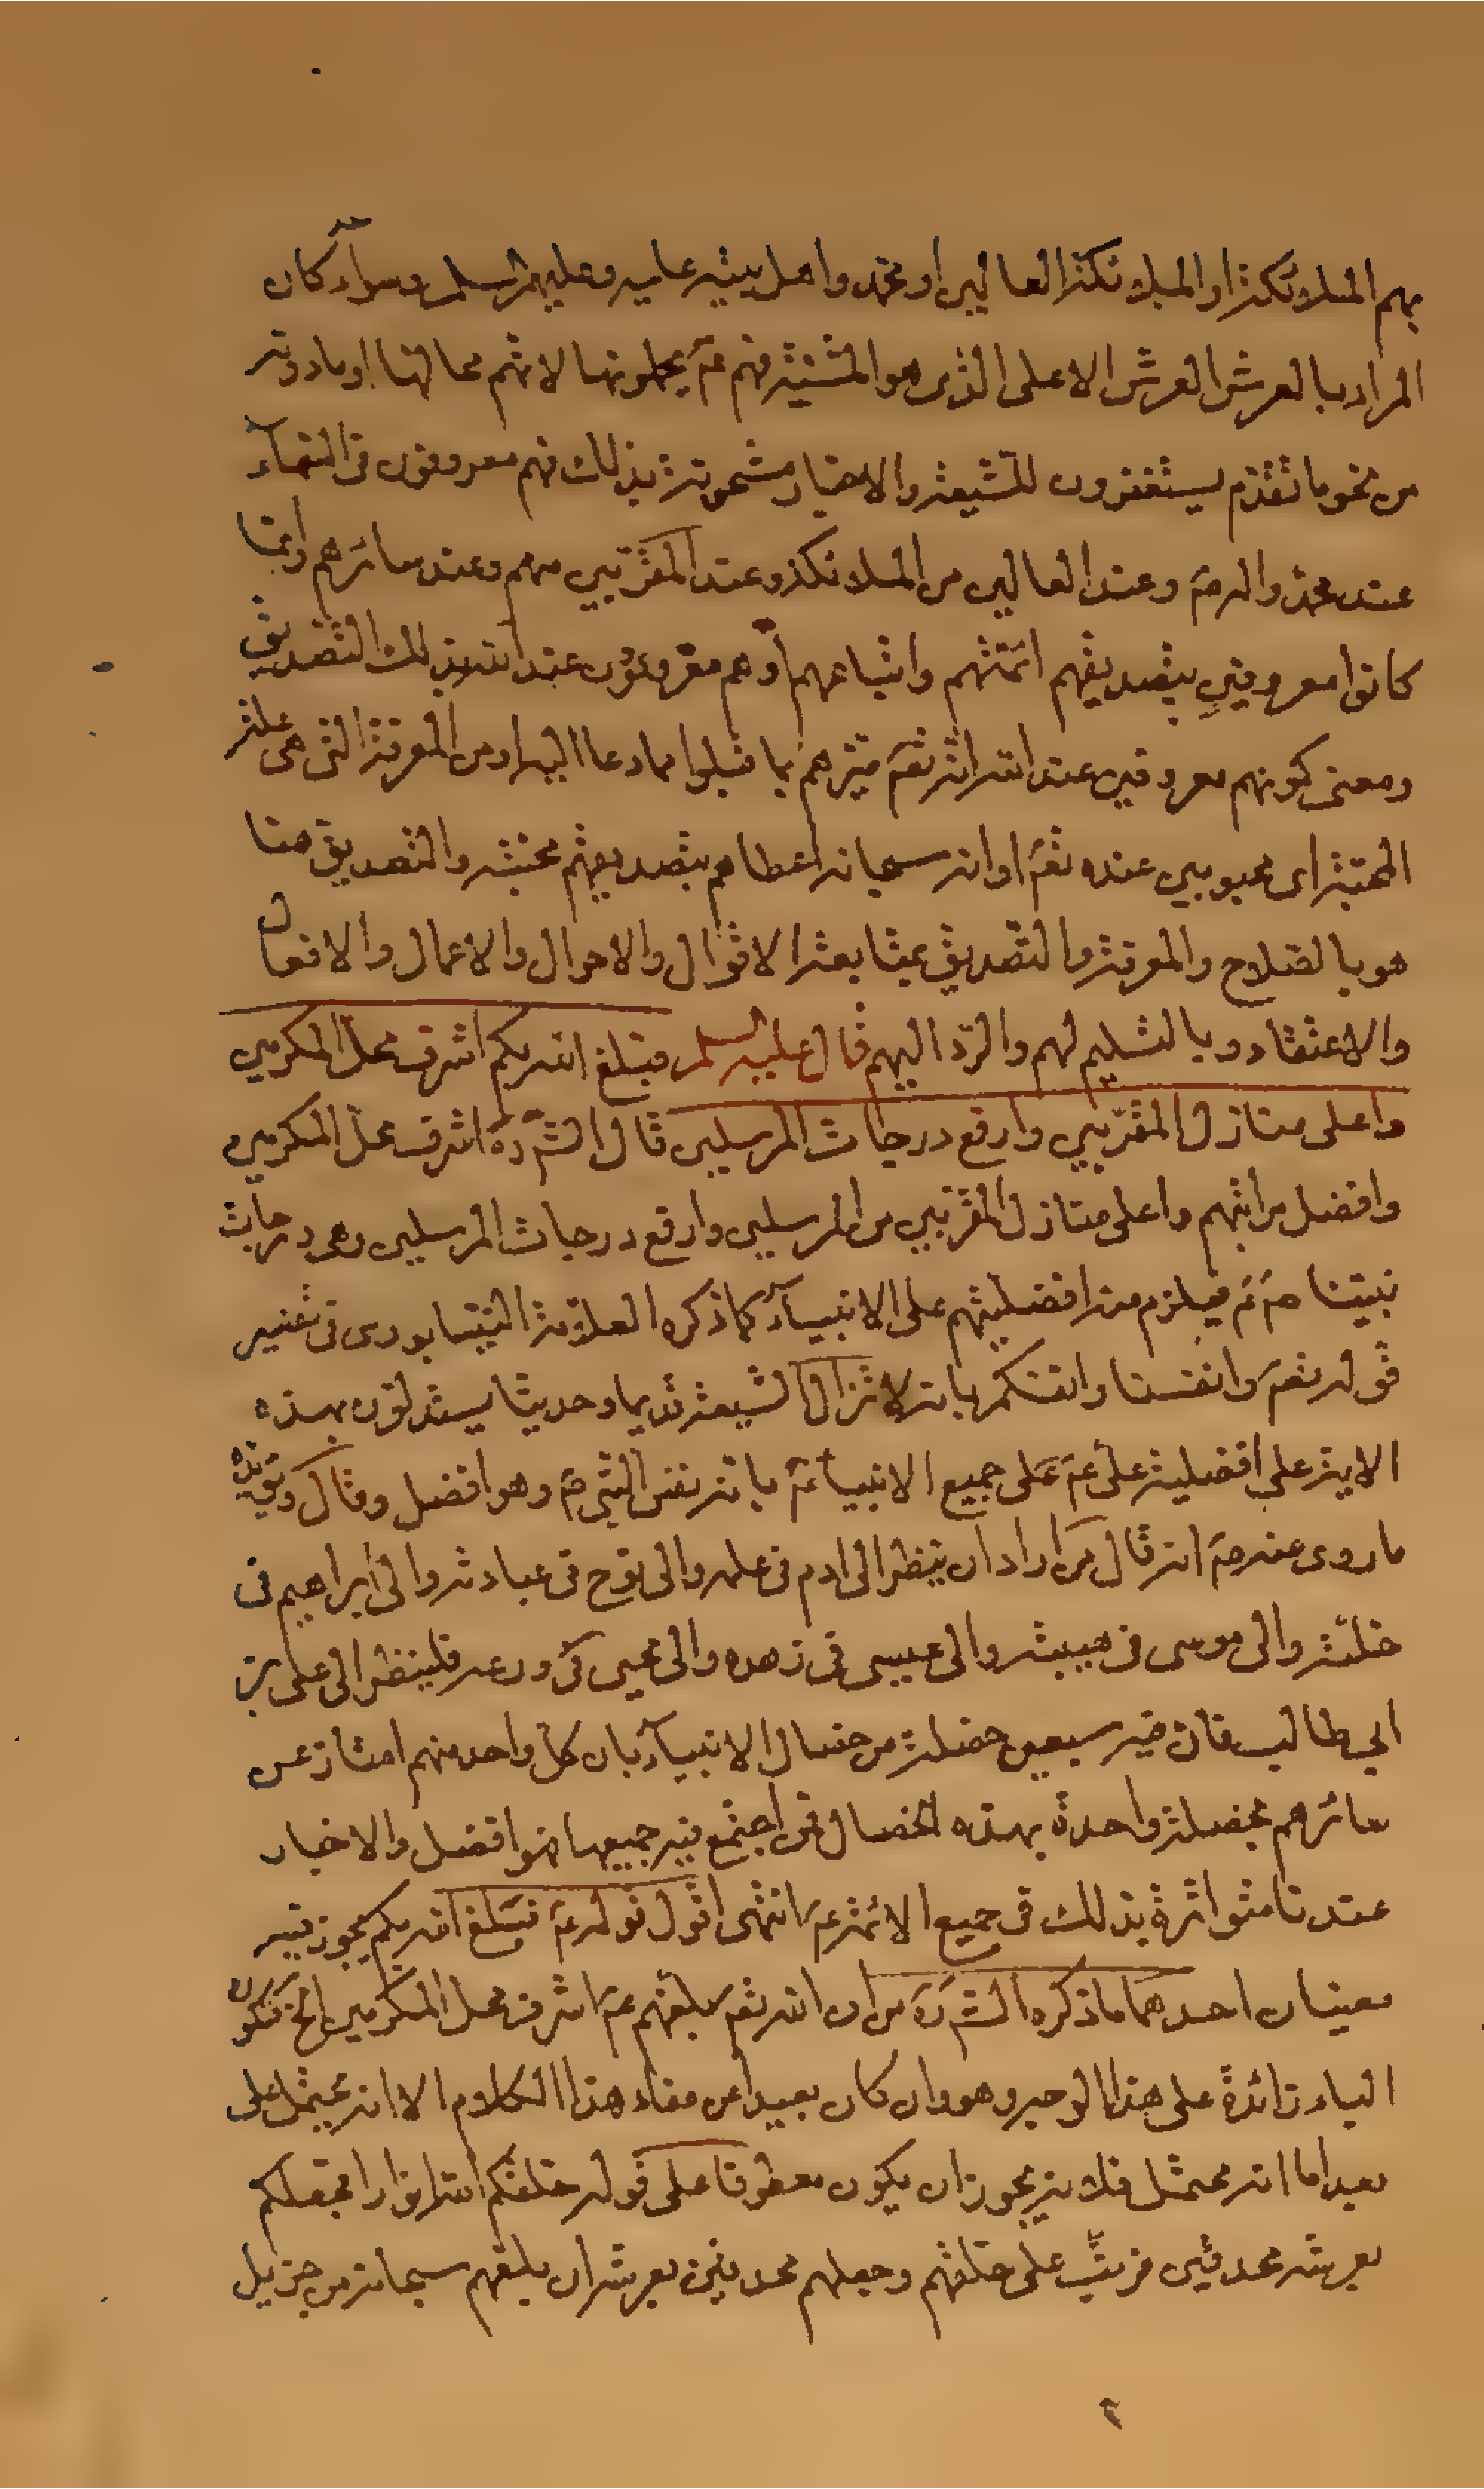 بهم الملائكة او الملائكة العالين او محمد واهل بيته عليه وعليهم السلم وسواء كان
المراد بالعرش العرش الاعلى الذى هو المشية فهم عم يحملونها لانهم محالها او ما دونه
من نحو ما تقدم يستغفرون للشيعة والاخبار مشحونة بذلك فهم معروفون فى السماء
عند محمد واله ص وعند العالين من الملائكة وعند المقربين منهم وعند سائرهم وانما
كانوا معروفين بتصديقهم ائمتهم واتباعهم او هم معروفون عند الله بذلك التصديق
ومعنى كونهم معروفين عند الله انه تعم ميزهم بما قبلوا مما دعا اليه او من المعرفة التى هى علة
المحبة اى محبوبين عنده تعم او انه سبحانه اعطاهم بتصديقهم محبته والتصديق هنا
هو بالصلاح والمعرفة والتصديق بمتابعة الاقوال والاحوال والاعمال والافعال
والاعتقاد وبالتسليم لهم والرد اليهم قال عليه السلم فبلغ الله بكم اشرف محل المكرمين
واعلى منازل المقربين وارفع درجات المرسلين قال الش ره اشرف محل المكرمين
وافضل مراتبهم واعلى منازل المقربين من المرسلين وارفع درجات المرسلين وهى درجات
نبينا ص عم فيلزم منه افضليتهم على الانبياء كما ذكره العلامة النيشابورى فى تفسير
قوله تعم وانفسنا وانفسكم بانه لا تزال الشيعة قديما وحديثا يستدلون بهذه
الاية على افضلية على عم على جميع الانبياء عم بانه نفس النبى ص وهو افضل وقال ويؤيده
ما روى عنه ص انه قال من اراد ان ينظر الى ادم فى علمه والى نوح فى عبادته والى ابراهيم فى
خلته والى موسى فى هيبته والى عيسى فى زهده والى يحيى فى ورعه فلينظر الى على بن
ابي طالب فان فيه سبعين خصلة من خصال الانبياء بان كل واحد منهم امتاز عن
سائرهم بخصلة واحدة بهذه الخصال فمن اجتمع فيه جميعها فهو افضل والاخبار
عندنا متواترة بذلك فى جميع الائمة عم انتهى اقول قوله عم فبلغ الله بكم يجوز فيه
معنيان احدهما ما ذكره الش ره من ان الله تعم بلغهم عم اشرف محل المكرمين الخ فتكون
الباء زائدة على هذا الوجه وهو وان كان بعيدا عن مفاد هذا الكلام الا انه يحتمل على
بعد اما انه محتمل فلانه يجوز ان يكون معطوفا على قوله خلقكم الله انوارا فجعلكم
بعرشه محدقين مرتب على خلقهم وجعلهم محدقين بعرشه ان بلغهم سبحانه من جزيل